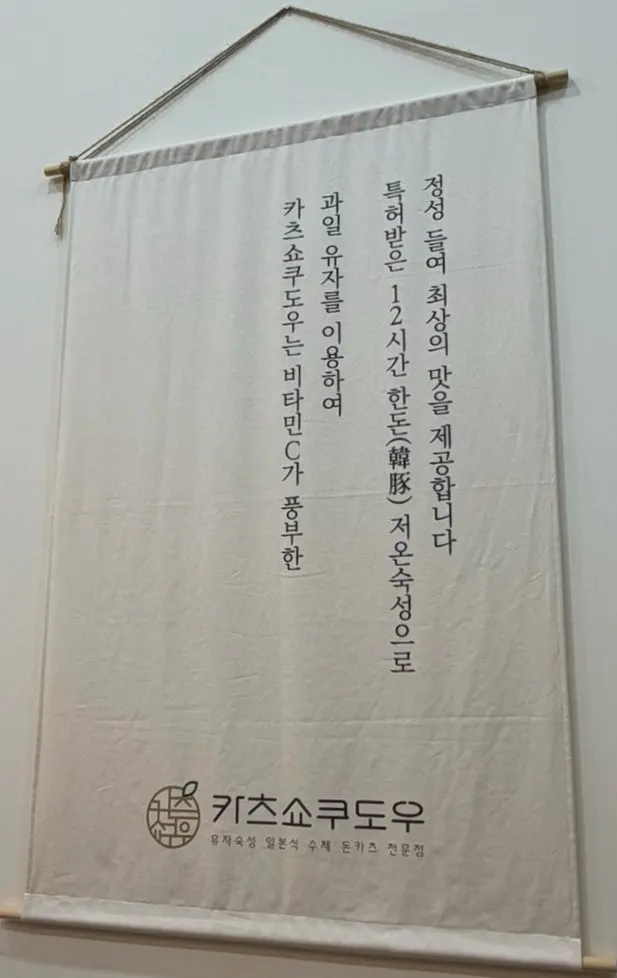 카츠쇼쿠도우는 비타민C가 풍부한
과일 유자를 이용하여
특허받은 12시간 한돈(韓豚) 저온숙성으로
정성 들여 최상의 맛을 제공합니다
카츠쇼쿠도우
유자숙성 일본식 수제 돈카츠 전문점